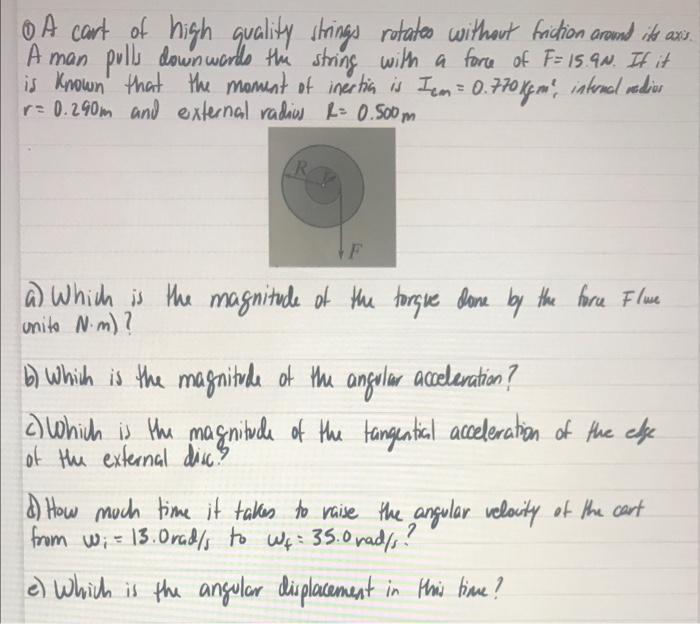 ① A cart of high quality strings rotates without friction around its axis.
A man pulls downwards the string with a force of F=15.9N. If it
is known that the moment of inertia is Icm = 0.770 Kgm², internal radius
r= 0.290m and external radius R= 0.500m
R r
F
a) Which is the magnitude of the torque done by the force F (use
units N·m)?
b) Which is the magnitude of the angular acceleration?
c) Which is the magnitude of the tangential acceleration of the edge
of the external disc?
d) How much time it takes to raise the angular velocity of the cart
from ωi = 13.0rad/s to ωf = 35.0 rad/s?
e) Which is the angular displacement in this time?